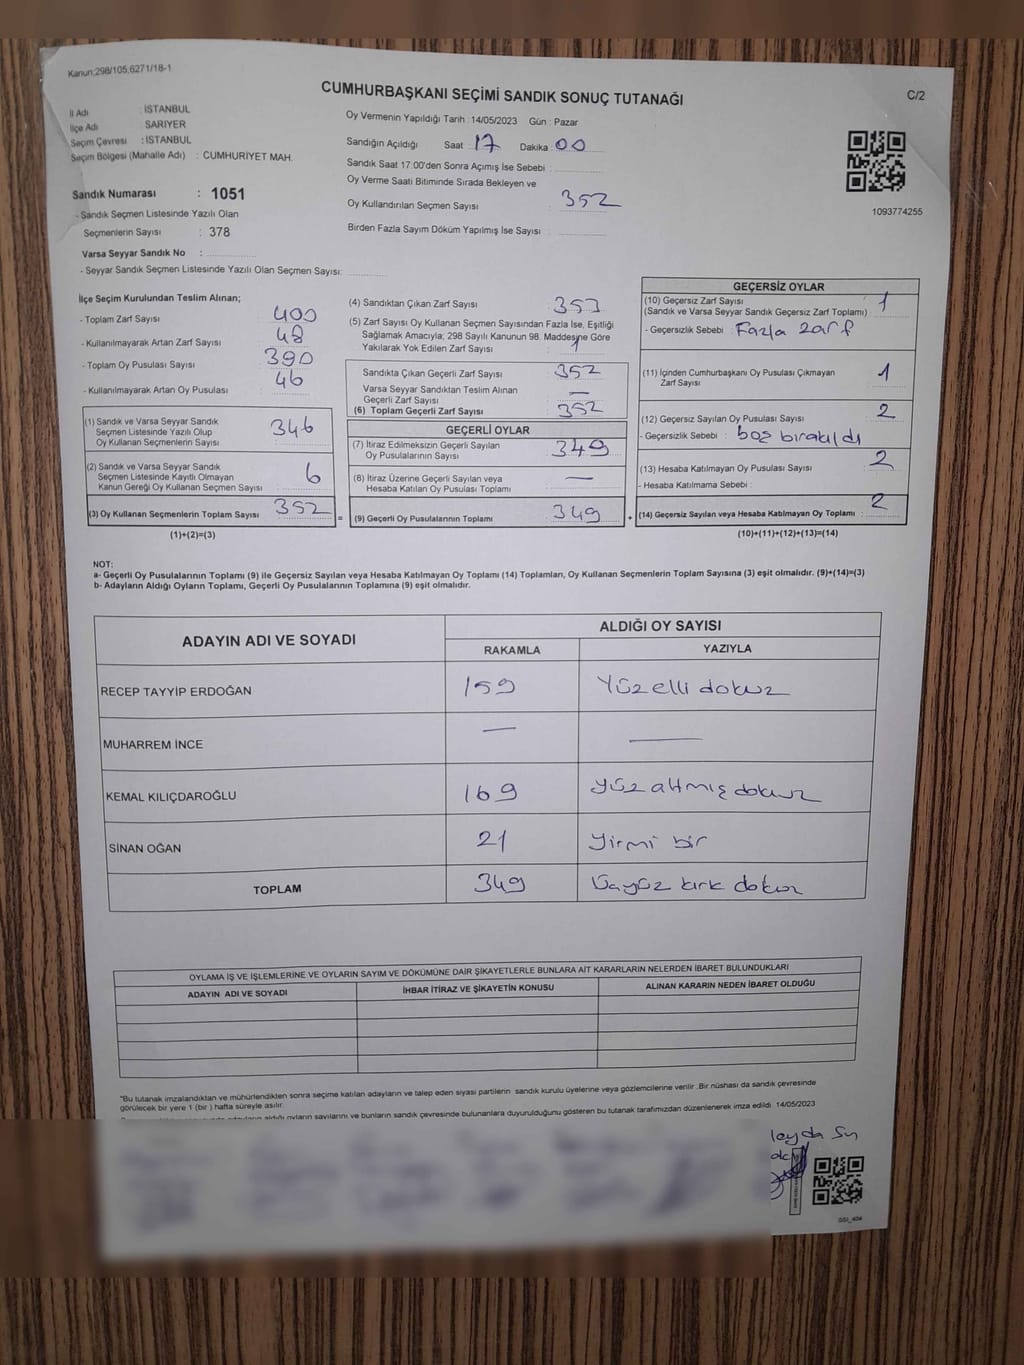 Kanun;298/105,6271/18-1
CUMHURBAŞKANI SEÇİMİ SANDIK SONUÇ TUTANAĞI
C/2
İl Adı : İSTANBUL
İlçe Adı SARIYER
Seçim Çevresi : İSTANBUL
Seçim Bölgesi (Mahalle Adı) : CUMHURİYET MAH.
Sandık Numarası : 1051
- Sandık Seçmen Listesinde Yazılı Olan
Seçmenlerin Sayısı : 378
Varsa Seyyar Sandık No :
- Seyyar Sandık Seçmen Listesinde Yazılı Olan Seçmen Sayısı:
Oy Vermenin Yapıldığı Tarih : 14/05/2023 Gün : Pazar
Sandığın Açıldığı Saat 17 Dakika 00
Sandık Saat 17:00'den Sonra Açılmış İse Sebebi :
Oy Verme Saati Bitiminde Sırada Bekleyen ve
Oy Kullandırılan Seçmen Sayısı : 352
Birden Fazla Sayım Döküm Yapılmış İse Sayısı :
1093774255
İlçe Seçim Kurulundan Teslim Alınan;
- Toplam Zarf Sayısı : 400
- Kullanılmayarak Artan Zarf Sayısı : 48
- Toplam Oy Pusulası Sayısı : 390
- Kullanılmayarak Artan Oy Pusulası : 46
(1) Sandık ve Varsa Seyyar Sandık
Seçmen Listesinde Yazılı Olup
Oy Kullanan Seçmenlerin Sayısı : 346
(2) Sandık ve Varsa Seyyar Sandık
Seçmen Listesinde Kayıtlı Olmayan
Kanun Gereği Oy Kullanan Seçmen Sayısı : 6
(3) Oy Kullanan Seçmenlerin Toplam Sayısı : 352 =
(1)+(2)=(3)
(4) Sandıktan Çıkan Zarf Sayısı : 353
(5) Zarf Sayısı Oy Kullanan Seçmen Sayısından Fazla İse, Eşitliği
Sağlamak Amacıyla; 298 Sayılı Kanunun 98. Maddesine Göre
Yakılarak Yok Edilen Zarf Sayısı : 1
Sandıkta Çıkan Geçerli Zarf Sayısı : 352
Varsa Seyyar Sandıktan Teslim Alınan
Geçerli Zarf Sayısı : —
(6) Toplam Geçerli Zarf Sayısı : 352
GEÇERLİ OYLAR
(7) İtiraz Edilmeksizin Geçerli Sayılan
Oy Pusulalarının Sayısı : 349
(8) İtiraz Üzerine Geçerli Sayılan veya
Hesaba Katılan Oy Pusulası Toplamı : —
(9) Geçerli Oy Pusulalarının Toplamı : 349 +
GEÇERSİZ OYLAR
(10) Geçersiz Zarf Sayısı
(Sandık ve Varsa Seyyar Sandık Geçersiz Zarf Toplamı) : 1
- Geçersizlik Sebebi : Fazla zarf
(11) İçinden Cumhurbaşkanı Oy Pusulası Çıkmayan
Zarf Sayısı : 1
(12) Geçersiz Sayılan Oy Pusulası Sayısı : 2
- Geçersizlik Sebebi : boş bırakıldı
(13) Hesaba Katılmayan Oy Pusulası Sayısı : 2
- Hesaba Katılmama Sebebi :
(14) Geçersiz Sayılan veya Hesaba Katılmayan Oy Toplamı : 2
(10)+(11)+(12)+(13)=(14)
NOT:
a- Geçerli Oy Pusulalarının Toplamı (9) ile Geçersiz Sayılan veya Hesaba Katılmayan Oy Toplamı (14) Toplamları, Oy Kullanan Seçmenlerin Toplam Sayısına (3) eşit olmalıdır. (9)+(14)=(3)
b- Adayların Aldığı Oyların Toplamı, Geçerli Oy Pusulalarının Toplamına (9) eşit olmalıdır.
ADAYIN ADI VE SOYADI ALDIĞI OY SAYISI
RAKAMLA YAZIYLA
RECEP TAYYİP ERDOĞAN 159 Yüzelli dokuz
MUHARREM İNCE — —
KEMAL KILIÇDAROĞLU 169 yüz altmış dokuz
SİNAN OĞAN 21 yirmi bir
TOPLAM 349 üçyüz kırk dokuz
OYLAMA İŞ VE İŞLEMLERİNE VE OYLARIN SAYIM VE DÖKÜMÜNE DAİR ŞİKAYETLERLE BUNLARA AİT KARARLARIN NELERDEN İBARET BULUNDUKLARI
ADAYIN ADI VE SOYADI İHBAR İTİRAZ VE ŞİKAYETİN KONUSU ALINAN KARARIN NEDEN İBARET OLDUĞU
"Bu tutanak imzalandıktan ve mühürlendikten sonra seçime katılan adayların ve talep eden siyasi partilerin sandık kurulu üyelerine veya gözlemcilerine verilir. Bir nüshası da sandık çevresinde
görülecek bir yere 1 (bir) hafta süreyle asılır.
aldığı oyların sayılarını ve bunların sandık çevresinde bulunanlara duyurulduğunu gösteren bu tutanak tarafımızdan düzenlenerek imza edildi. 14/05/2023